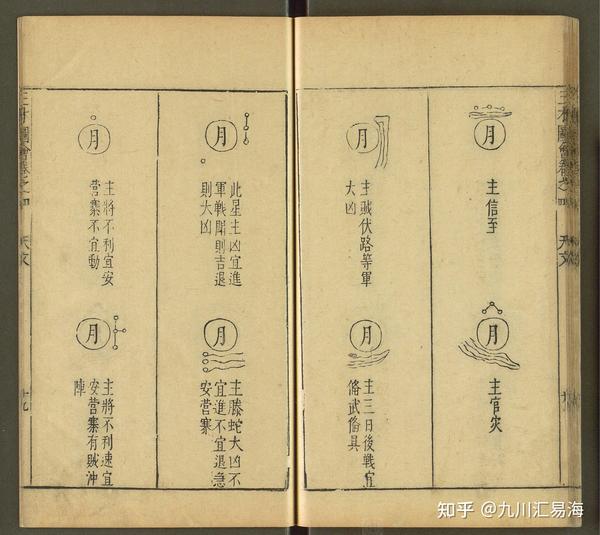 三才圖會卷之四 天文
月
主信至
月
主官灾
月
主賊伏路等軍
大凶
月
主三日後戰宜
俻武俻具
月
此星主凶宜進
軍戰鬬則吉退
則大凶
月
主騰蛇大凶不
宜進不宜退急
安營寨
月
主將不利宜安
營寨不宜動
月
主將不利速宜
安營寨有賊沖
陣
三才圖會卷之四 天文 十九
知乎 @九川汇易海